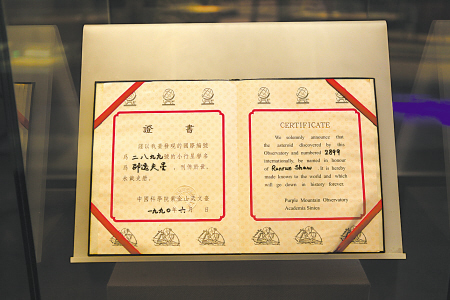 證 書
謹以我臺發現的國際編號
為二八九九號的小行星譽名
為邵逸夫星，刊傳於世，
永載史曆。
中國科學院紫金山天文臺
一九九〇年六月 日
CERTIFICATE
We solemnly announce that
the asteroid discovered by this
Observatory and numbered 2899
internationally, be named in honour
of Runrun Shaw. It is hereby
made known to the world and which
will go down in history forever.
Purple Mountain Observatory
Academia Sinica